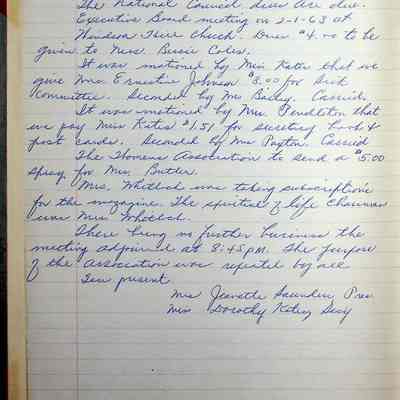 The National Council dues are due.
Executive Board meeting on 2-1-63 at
Windsor Tree Church. Dues $4.00 to be
given to Mrs. Bessie Coles.
It was motioned by Miss Katey that we
give Mrs. Ernestine Johnson $3.00 for Sick
Committee. Seconded by Mrs Bailey. Carried.
It was motioned by Mrs. Pendleton that
we pay Miss Katey $1.51 for secretary book &
post cards. Seconded by Mrs Payton. Carried
The Womens Association to send a $5.00
spray for Mrs. Butler.
Mrs. Whitlock was taking subscriptions
for the magazine. The spiritual life Chairman
was Mrs Whitlock.
There being no further business the
meeting adjoined at 8:45 P.M. The purpose
of the Association was repeated by all
Ten present.
Mrs Jeanette Saunders, Pres
Miss Dorothy Katey, Secy